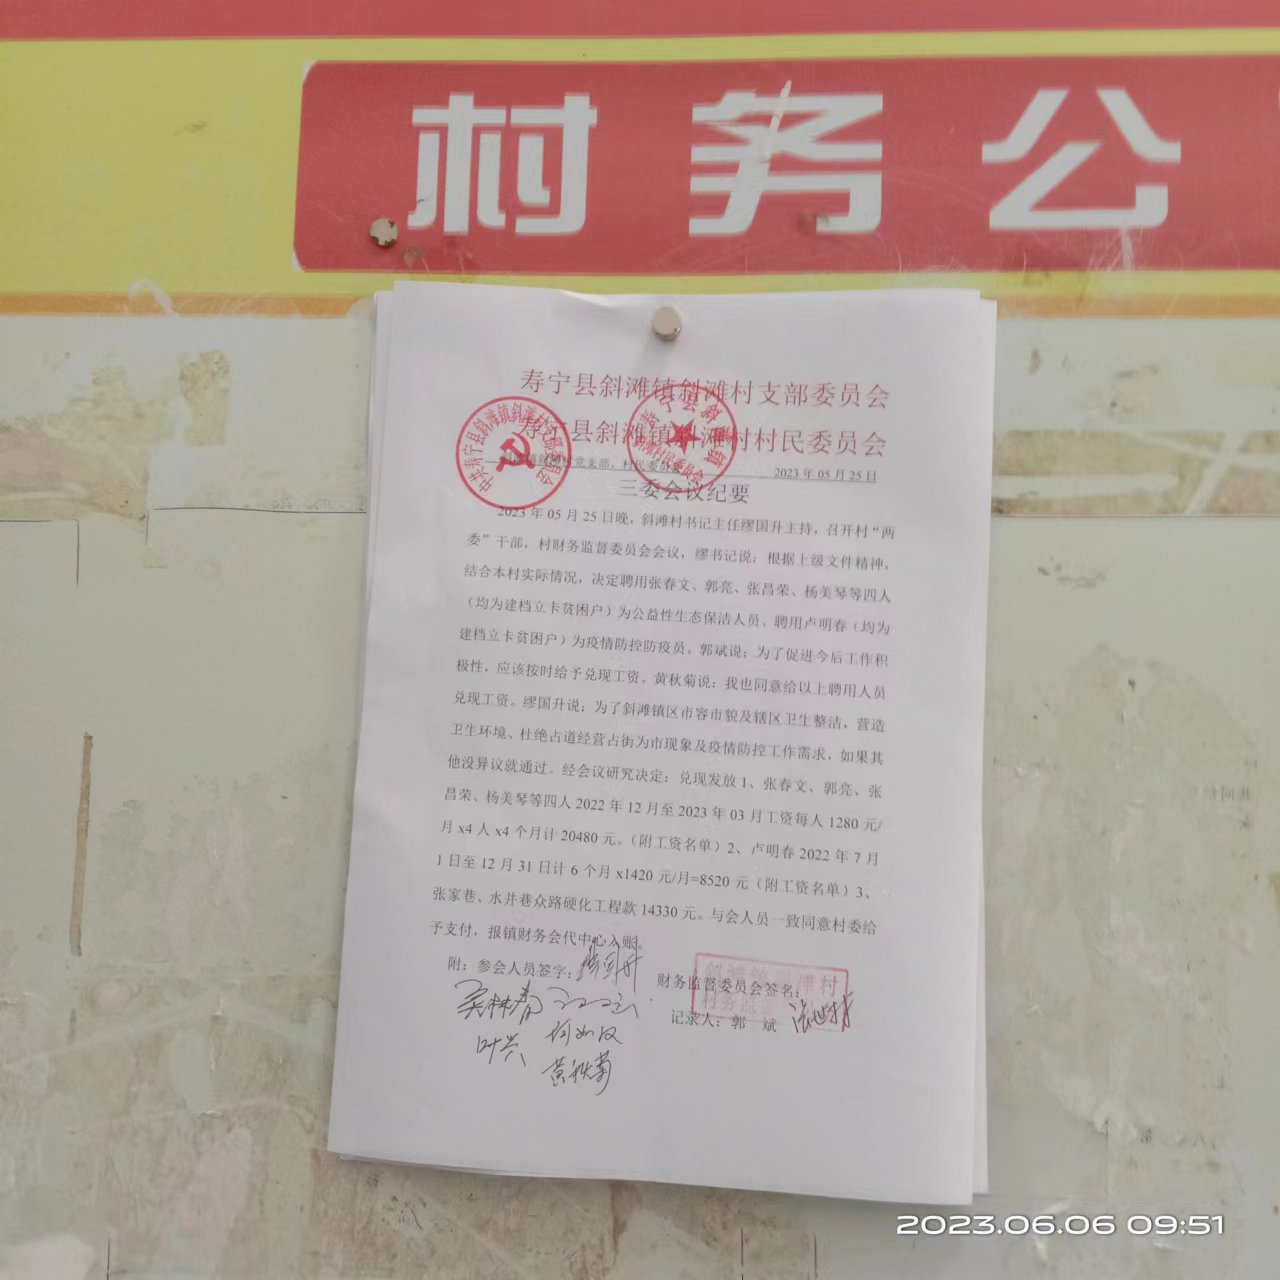 村务公
寿宁县斜滩镇斜滩村支部委员会
寿宁县斜滩镇斜滩村村民委员会
斜滩镇斜滩村党支部、村民委员会 2023年05月25日
三委会议纪要
2023年05月25日晚，斜滩村书记主任缪国升主持，召开村“两
委”干部，村财务监督委员会会议，缪书记说：根据上级文件精神，
结合本村实际情况，决定聘用张春文、郭亮、张昌荣、杨美琴等四人
（均为建档立卡贫困户）为公益性生态保洁人员、聘用卢明春（均为
建档立卡贫困户）为疫情防控防疫员。郭斌说：为了促进今后工作积
极性，应该按时给予兑现工资。黄秋菊说：我也同意给以上聘用人员
兑现工资。缪国升说：为了斜滩镇区市容市貌及辖区卫生整洁，营造
卫生环境、杜绝占道经营占街为市现象及疫情防控工作需求，如果其
他没异议就通过。经会议研究决定：兑现发放1、张春文、郭亮、张
昌荣、杨美琴等四人2022年12月至2023年03月工资每人1280元/
月x4人x4个月计20480元。（附工资名单）2、卢明春2022年7月
1日至12月31日计6个月x1420元/月=8520元（附工资名单）3、
张家巷、水井巷众路硬化工程款14330元。与会人员一致同意村委给
予支付，报镇财务会代中心入账。
附：参会人员签字：缪国升 财务监督委员会签名：
记录人：郭斌
叶兴
黄秋菊
中共寿宁县斜滩镇斜滩村支部委员会
寿宁县斜滩镇斜滩村民委员会
斜滩镇斜滩村
2023.06.06 09:51